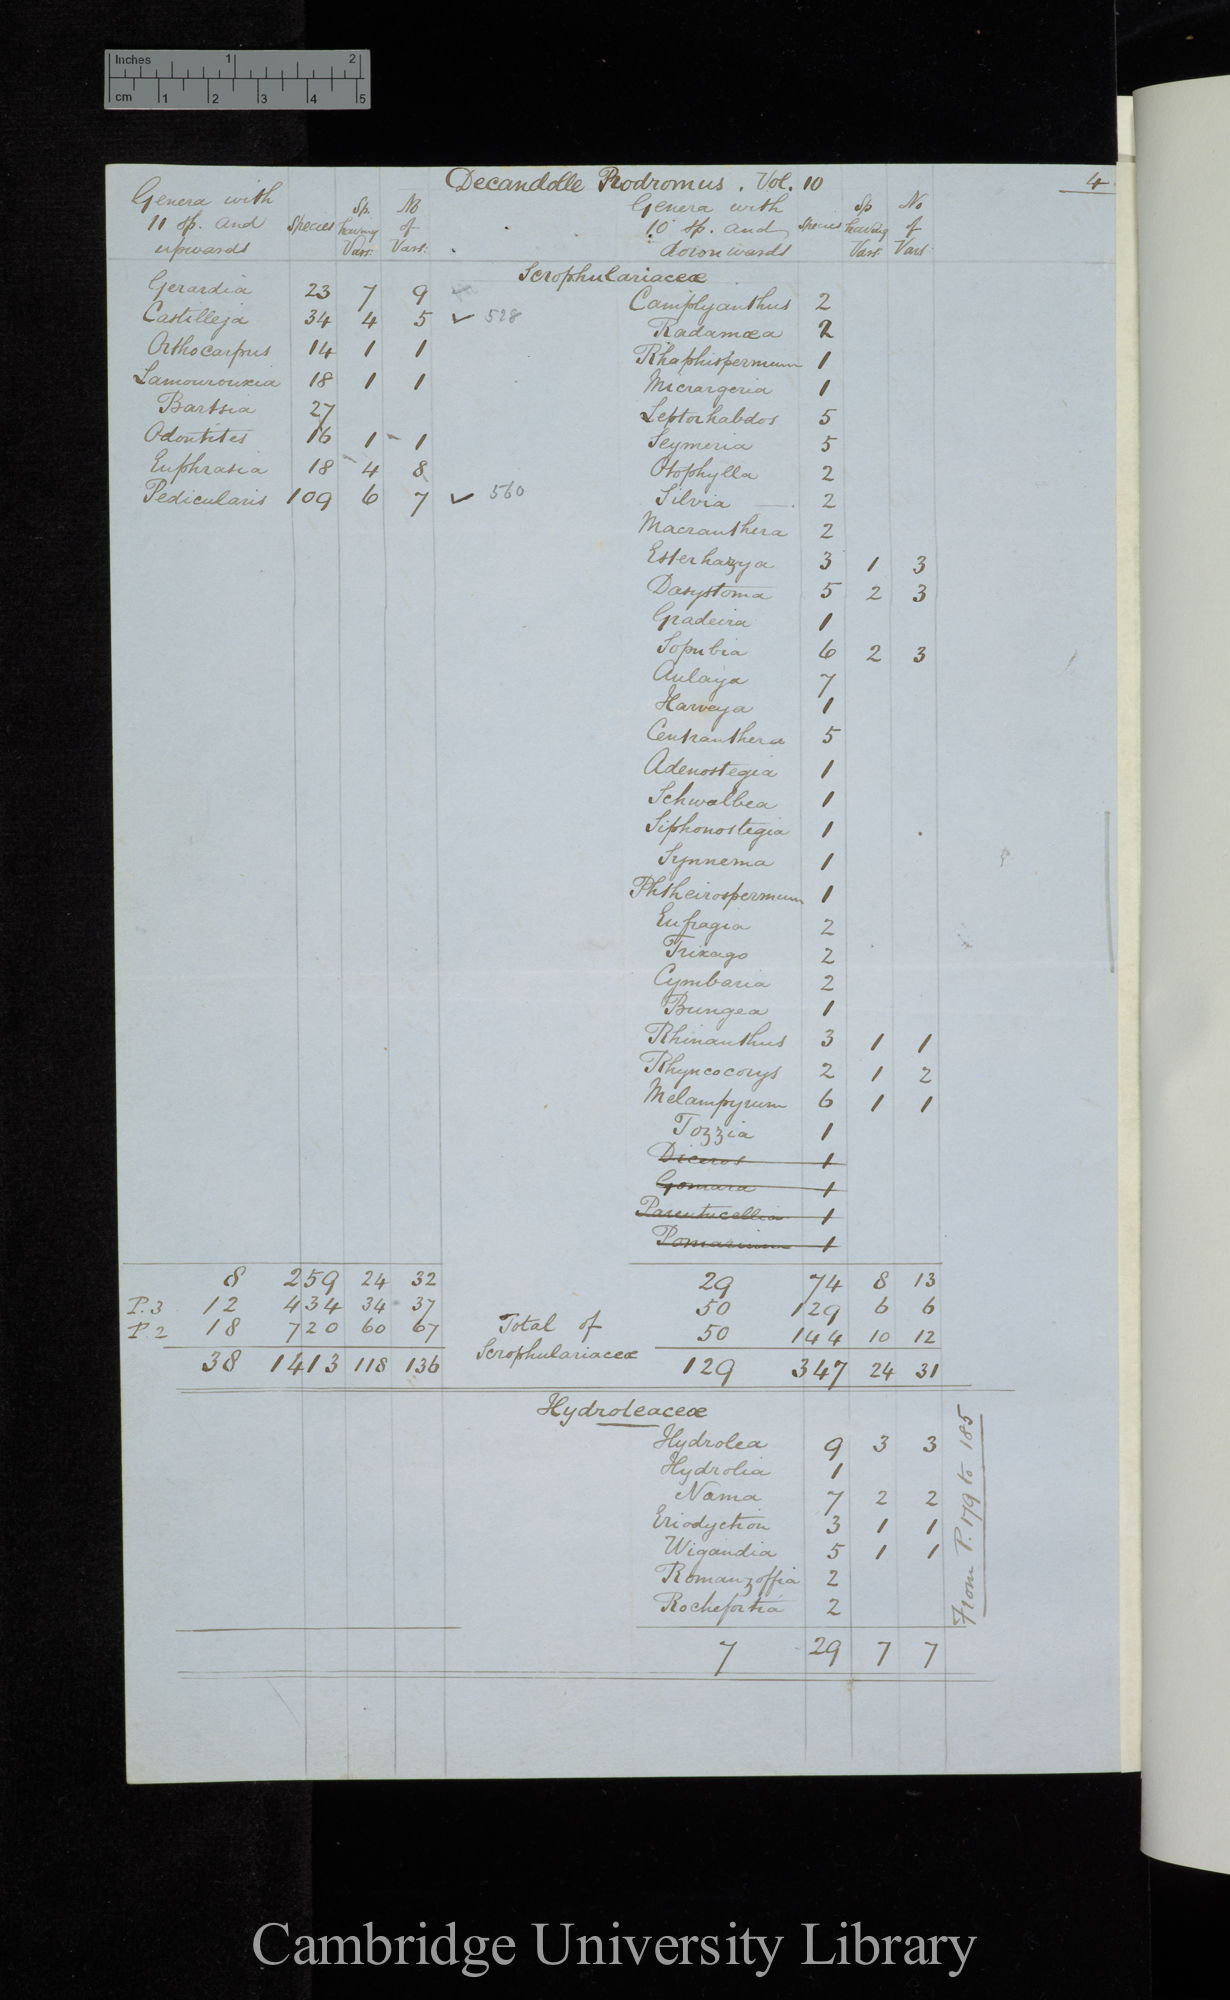 Inches 1 2
cm 1 2 3 4 5
Decandolle Prodromus. Vol. 10
4
Genera with 11 sp. and upwards Species Sp. having Vars. No of Vars.
Genera with 10 sp. and downwards Species Sp having Vars. No of Vars.
Scrophulariaceæ
Gerardia 23 7 9
Castilleja 34 4 5 ✓ 528
Orthocarpus 14 1 1
Lamourouxia 18 1 1
Bartsia 27
Odontites 16 1 1
Euphrasia 18 4 8
Pedicularis 109 6 7 ✓ 560
Camplyanthus 2
Radamæa 2
Rhaphispermum 1
Micrargeria 1
Leptorhabdos 5
Seymeria 5
Otophylla 2
Silvia 2
Macranthera 2
Esterhazya 3 1 3
Dasystoma 5 2 3
Gradeira 1
Sopubia 6 2 3
Aulaya 7
Harveya 1
Centranthera 5
Adenostegia 1
Schwalbea 1
Siphonostegia 1
Synnema 1
Phtheirospermum 1
Eufragia 2
Trixago 2
Cymbaria 2
Bungea 1
Rhinanthus 3 1 1
Rhyncocorys 2 1 2
Melampyrum 6 1 1
Tozzia 1
Diceros 1
Gomara 1
Parentucellia 1
Pomarium 1
8 259 24 32
P.3 12 434 34 37
P.2 18 720 60 67
38 1413 118 136
Total of
Scrophulariaceæ
29 74 8 13
50 129 6 6
50 144 10 12
129 347 24 31
Hydroleaceæ
Hydrolea 9 3 3
Hydrolia 1
Nama 7 2 2
Eriodyction 3 1 1
Wigandia 5 1 1
Romanzoffia 2
Rochefortia 2
7 29 7 7
From P. 179 to 185
Cambridge University Library